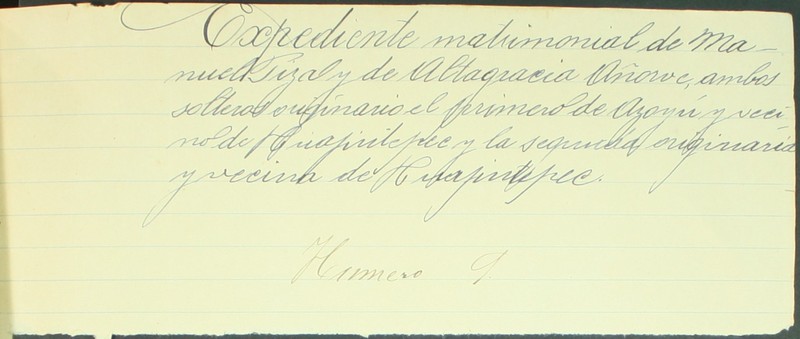 Expediente matrimonial de Ma-
nuel Pizal y de Altagracia Añorve, ambos
solteros originario el primero de Azoyú y veci
no de Huajintepec y la segunda originaria
y vecina de Huajintepec.
Numero 9